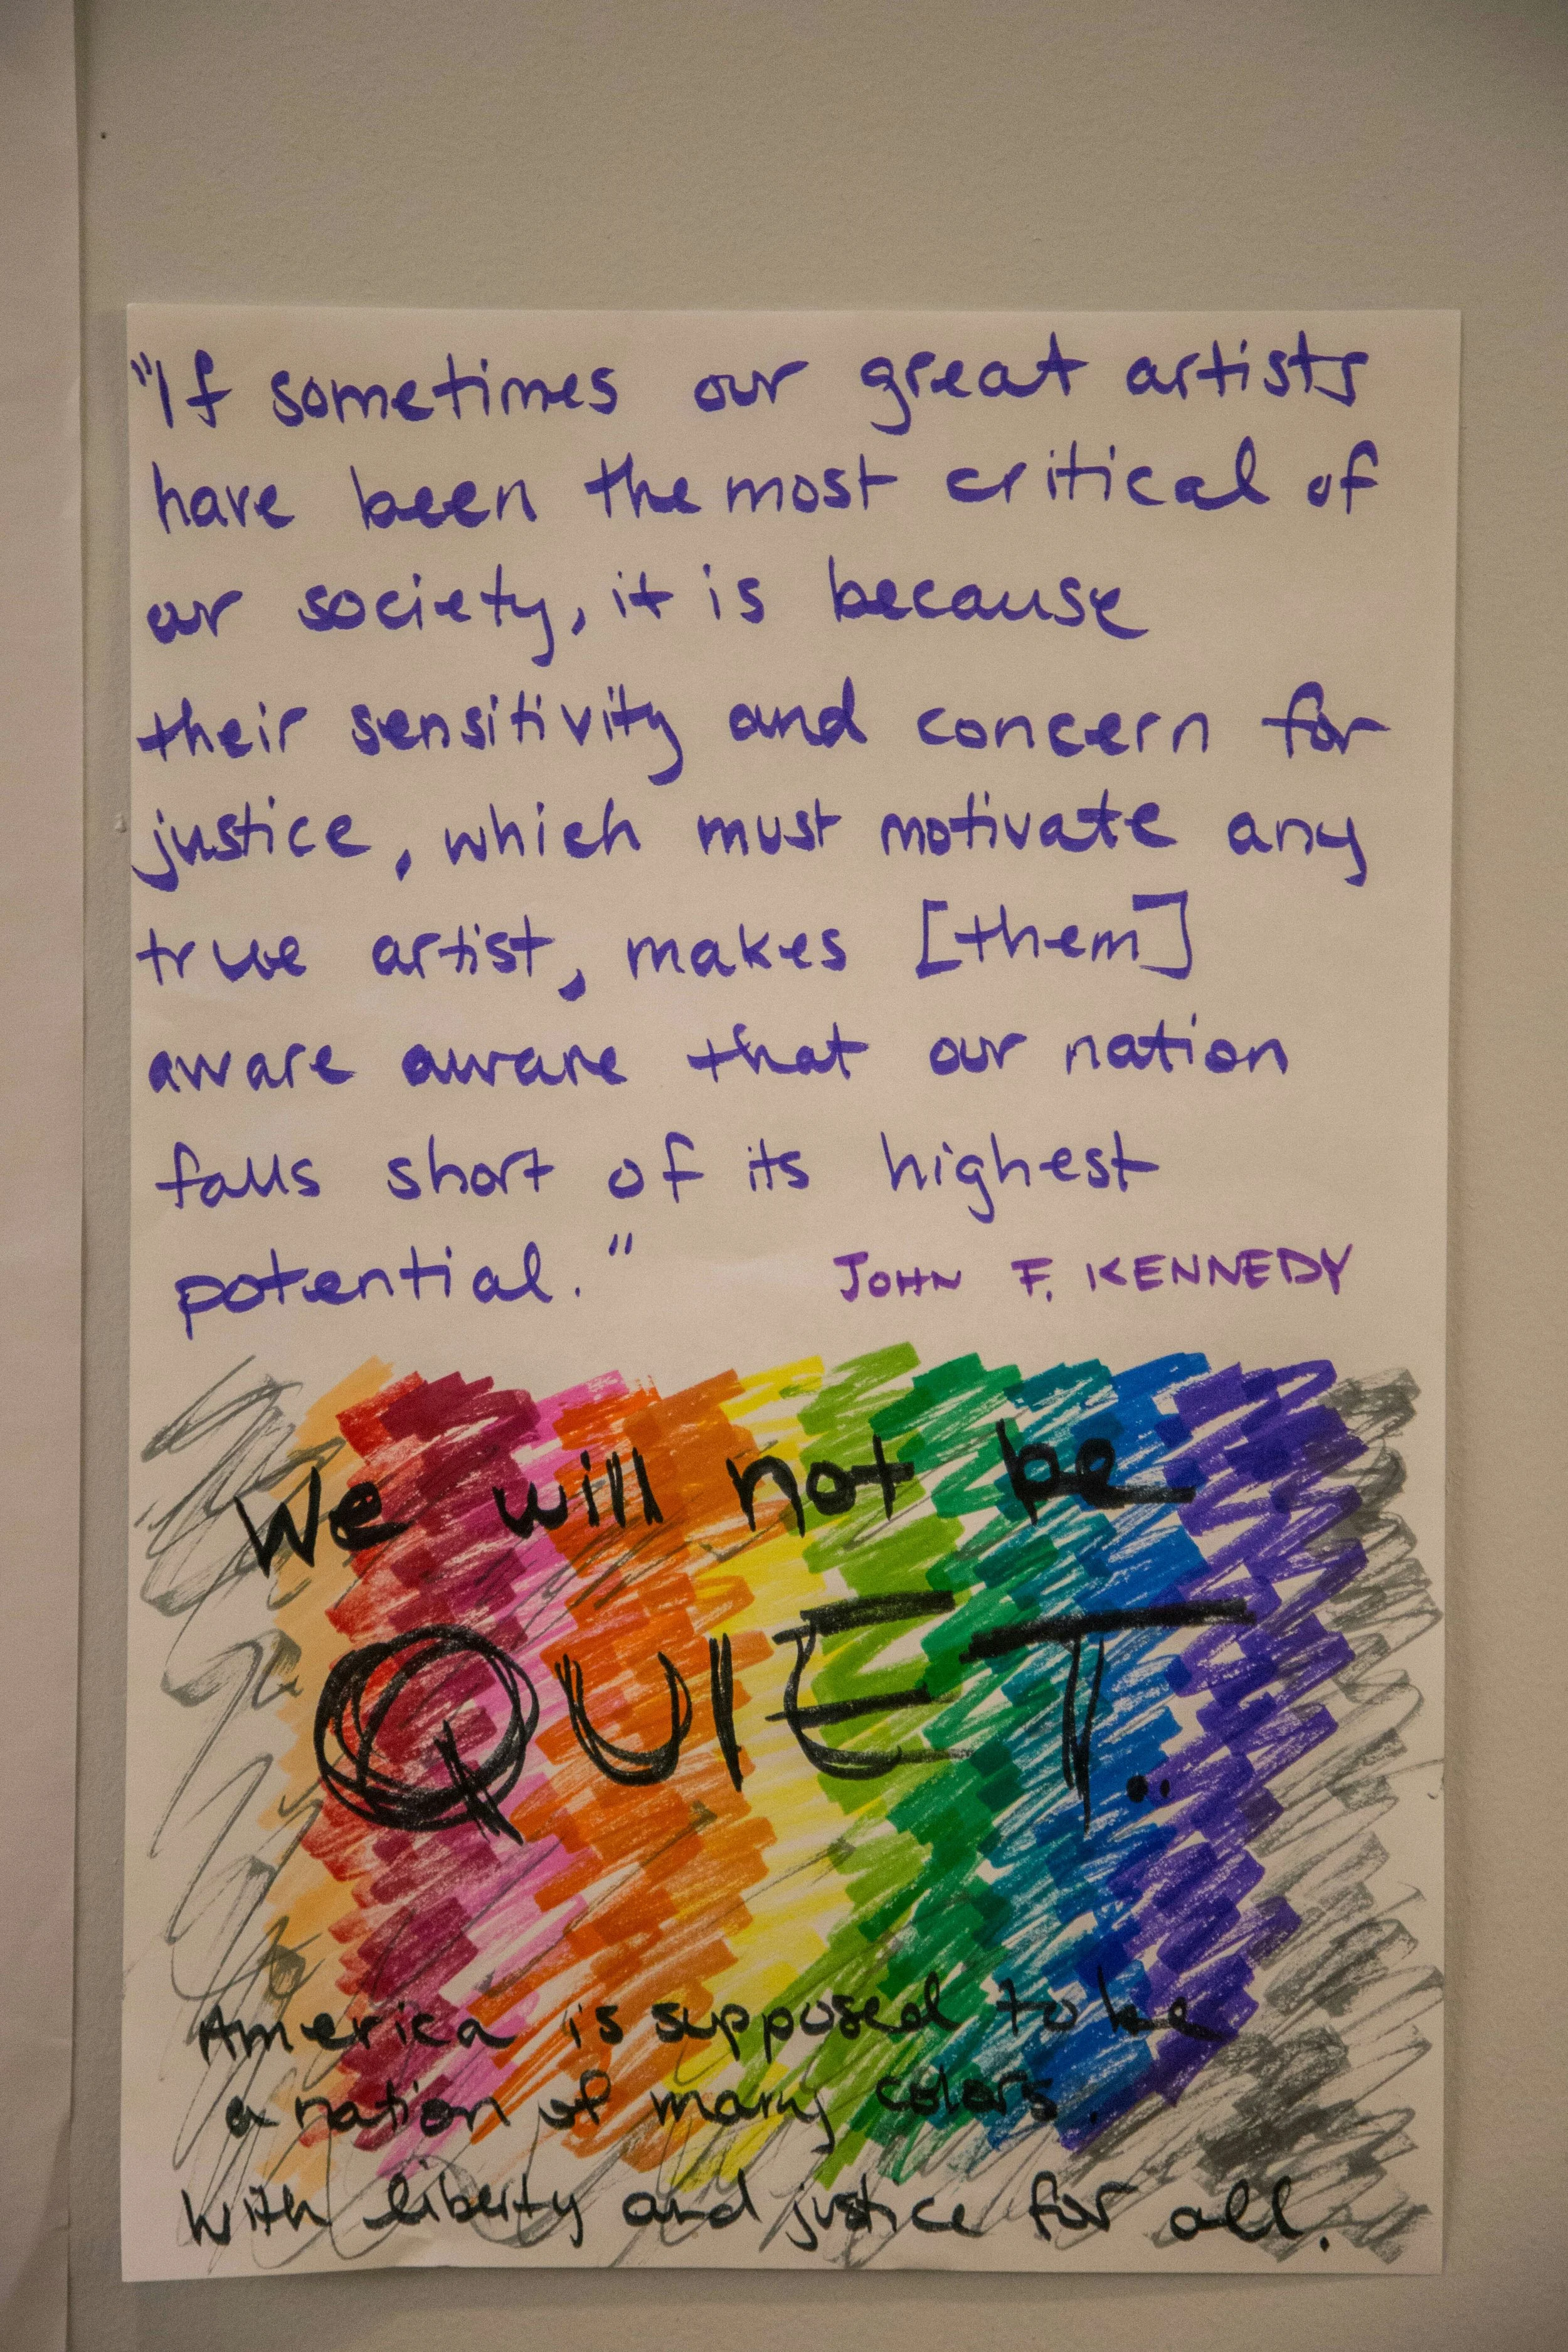 "If sometimes our great artists
have been the most critical of
our society, it is because
their sensitivity and concern for
justice, which must motivate any
true artist, makes [them]
aware aware that our nation
falls short of its highest
potential."
JOHN F. KENNEDY
We will not be
QUIET..
America is supposed to be
a nation of many colors.
With liberty and justice for all.